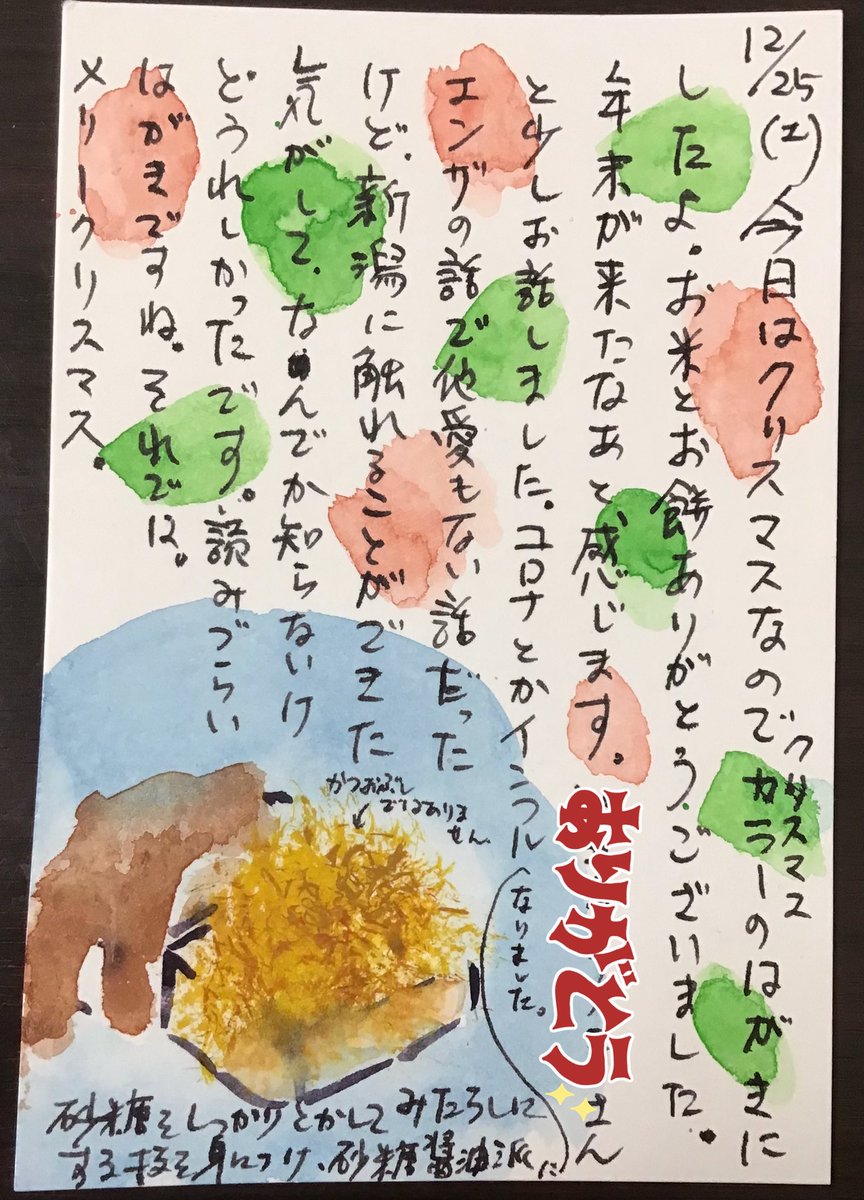 12/25(土)今日はクリスマスなのでクリスマスカラーのはがきに
したよ。お米とお餅ありがとうございました。
年末が来たなあと感じます。
ありがとう
さん
と少しお話しました。コロナとかインフル
エンザの話で他愛もない話だった
けど、新潟に触れることができた
気がして、なんでか知らないけ
どうれしかったです。読みづらい
はがきですね。それでは。
メリークリスマス。
かつおぶし
ではありま
せん
砂糖をしっかりとかしてみたらしに
する技を身につけ、砂糖醤油派に
なりました。